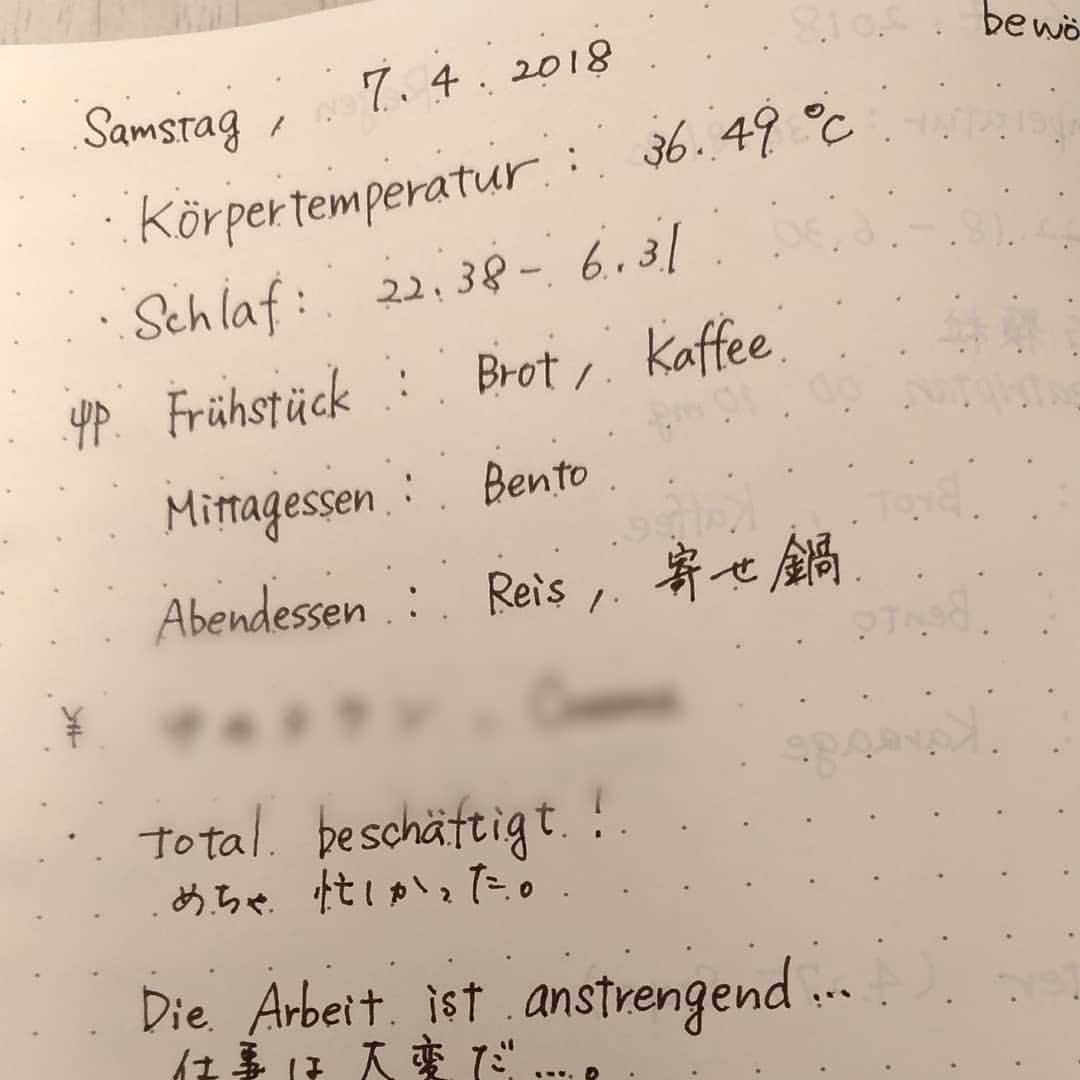 bewö
Samstag, 7.4.2018
・Körpertemperatur: 36.49 °C
・Schlaf: 22.38 - 6.31
Frühstück: Brot, Kaffee
Mittagessen: Bento
Abendessen: Reis, 寄せ鍋
¥
・Total beschäftigt!
めちゃ忙しかった。
Die Arbeit ist anstrengend...
仕事は大変だ...。